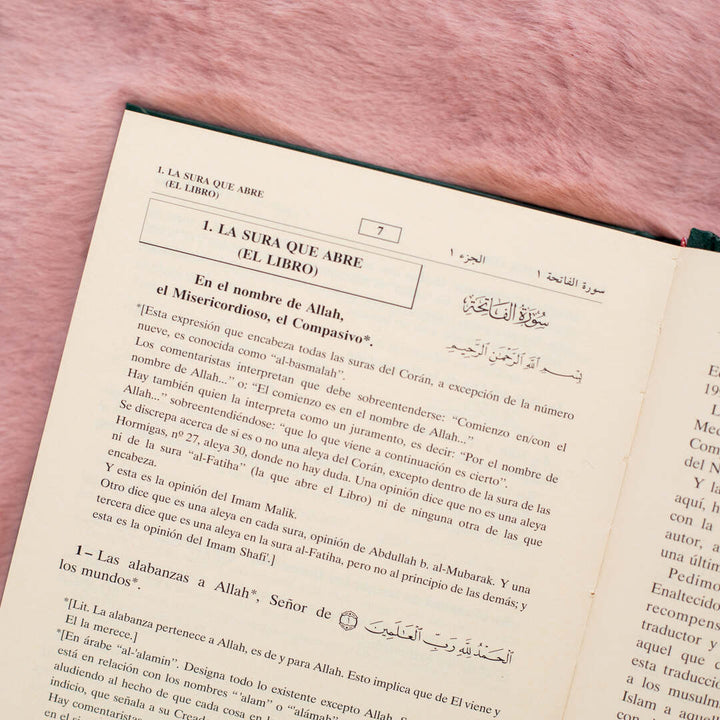 1. LA SURA QUE ABRE
(EL LIBRO)
7
الجزء ١
سورة الفاتحة ١
1. LA SURA QUE ABRE
(EL LIBRO)
سُورَةُ الفَاتِحَةِ
En el nombre de Allah,
el Misericordioso, el Compasivo*.
بِسْمِ اللَّهِ الرَّحْمَٰنِ الرَّحِيمِ
*[Esta expresión que encabeza todas las suras del Corán, a excepción de la número
nueve, es conocida como “al-basmalah”.
Los comentaristas interpretan que debe sobreentenderse: “Comienzo en/con el
nombre de Allah...” o: “El comienzo es en el nombre de Allah...”
Hay también quien la interpreta como un juramento, es decir: “Por el nombre de
Allah...” sobreentendiéndose: “que lo que viene a continuación es cierto”.
Se discrepa acerca de si es o no una aleya del Corán, excepto dentro de la sura de las
Hormigas, nº 27, aleya 30, donde no hay duda. Una opinión dice que no es una aleya
ni de la sura “al-Fatiha” (la que abre el Libro) ni de ninguna otra de las que
encabeza.
Y esta es la opinión del Imam Malik.
Otro dice que es una aleya en cada sura, opinión de Abdullah b. al-Mubarak. Y una
tercera dice que es una aleya en la sura al-Fatiha, pero no al principio de las demás; y
esta es la opinión del Imam Shafi'.]
1– Las alabanzas a Allah*, Señor de
los mundos*.
الْحَمْدُ لِلَّهِ رَبِّ الْعَالَمِينَ ١
*[Lit. La alabanza pertenece a Allah, es de y para Allah. Esto implica que El viene y
El la merece.]
*[En árabe “al-'alamin”. Designa todo lo existente excepto Allah.
está en relación con los nombres “'alam” o “'alámah”
aludiendo al hecho de que cada cosa en
indicio, que señala a su Cread
Hay comentaristas
en el
199
Med
Com
del N
Y la
aquí, h
con la
autor, a
una últim
Pedimo
Enaltecido
recompens
traductor y
aquel que c
esta traducció
a los musulm
Islam a aque
con